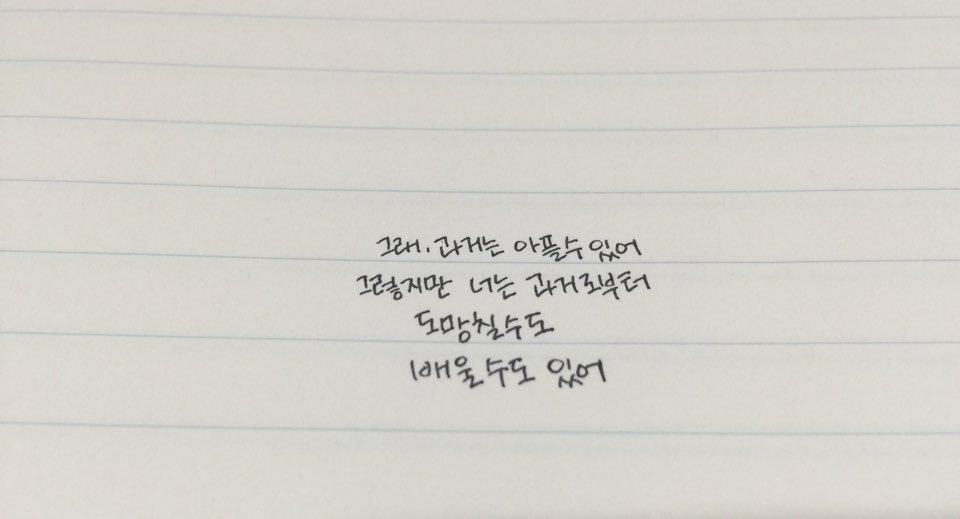 그래. 과거는 아플수있어
그렇지만 너는 과거로부터
도망칠수도
배울수도 있어